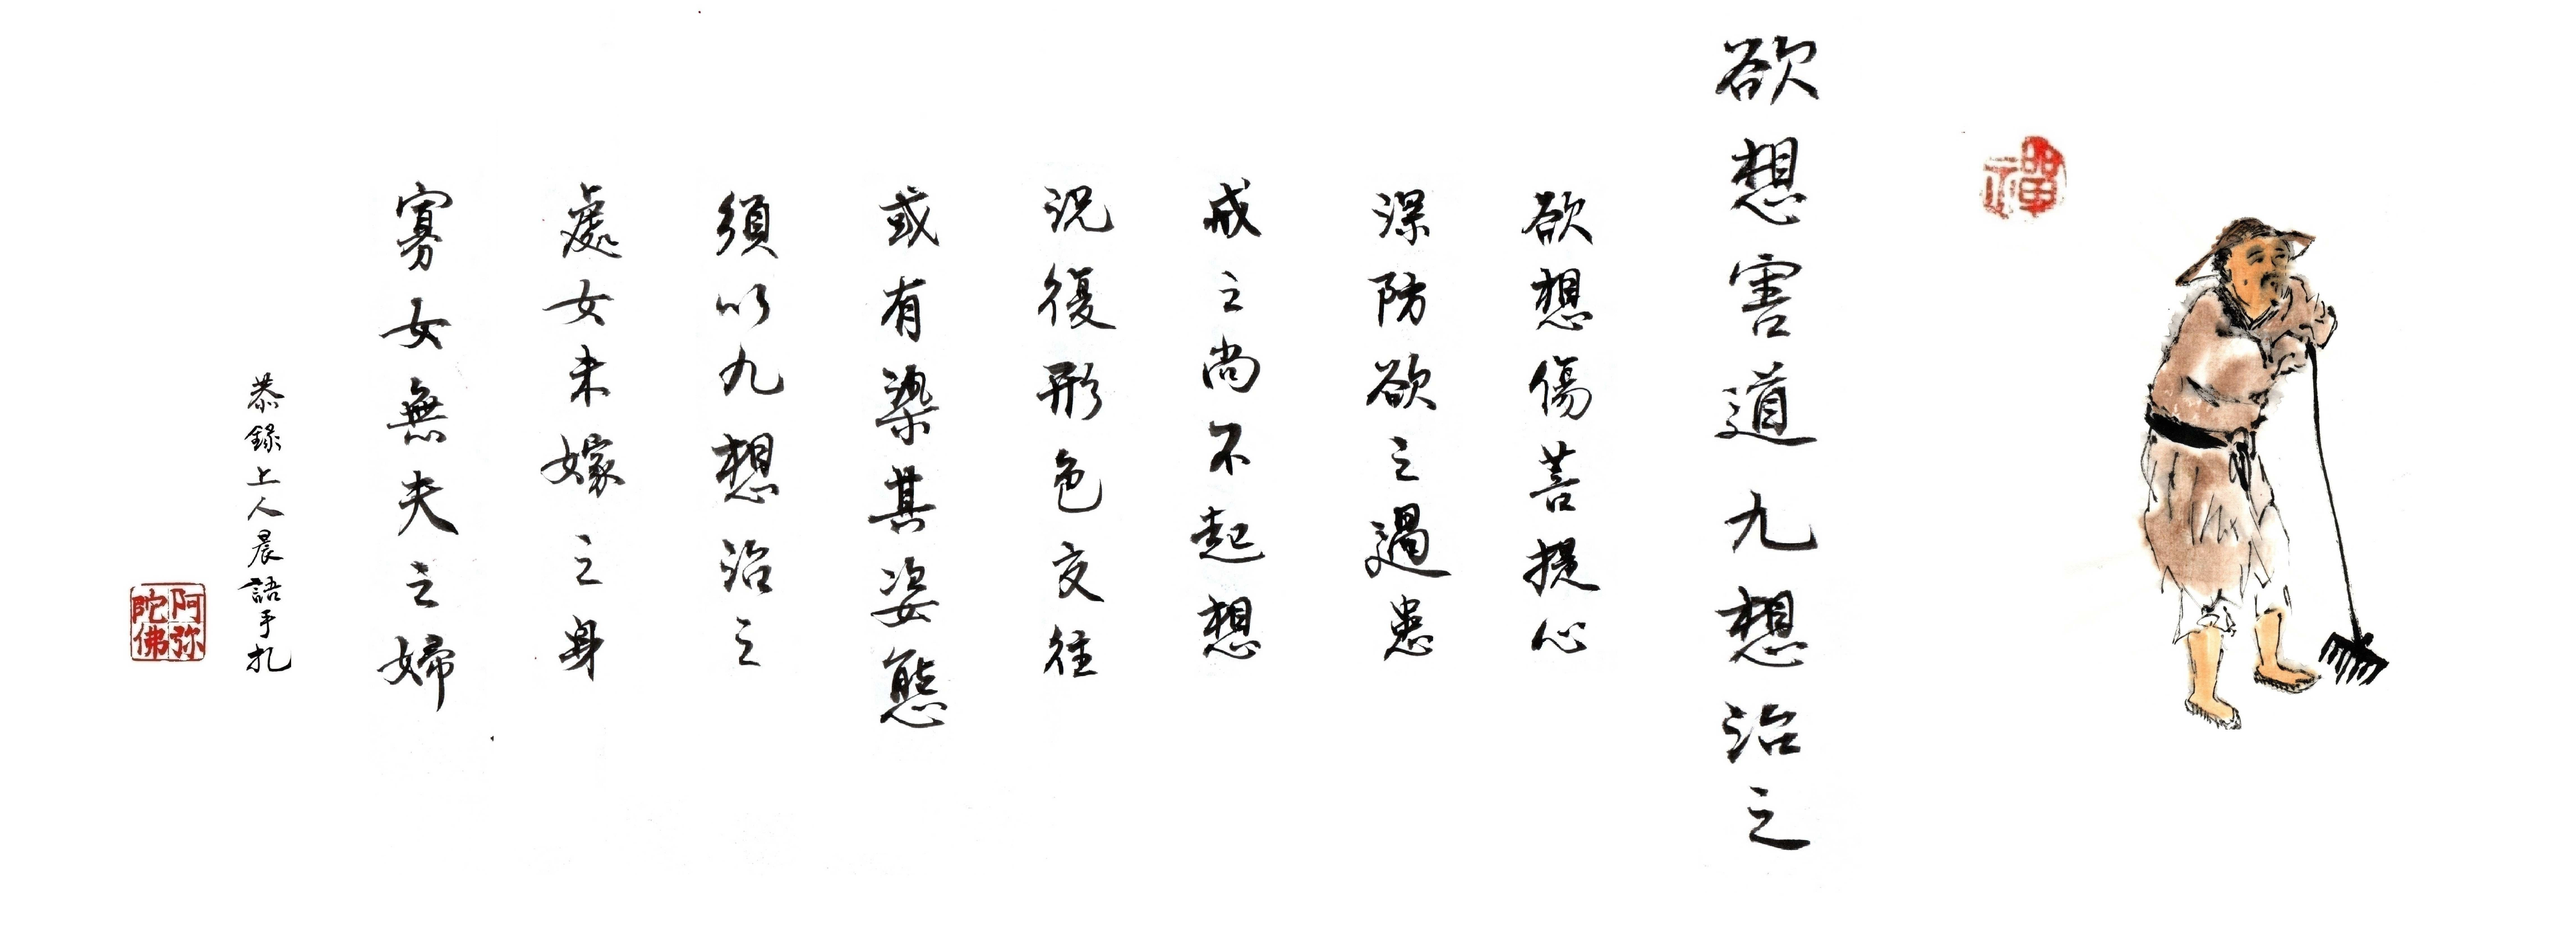 禪
欲想害道九想治之
欲想傷菩提心
深防欲之過患
戒之尚不起想
況復形色交往
或有染其姿態
須以九想治之
處女未嫁之身
寡女無夫之婦
恭錄上人晨語手扎
阿弥陀佛